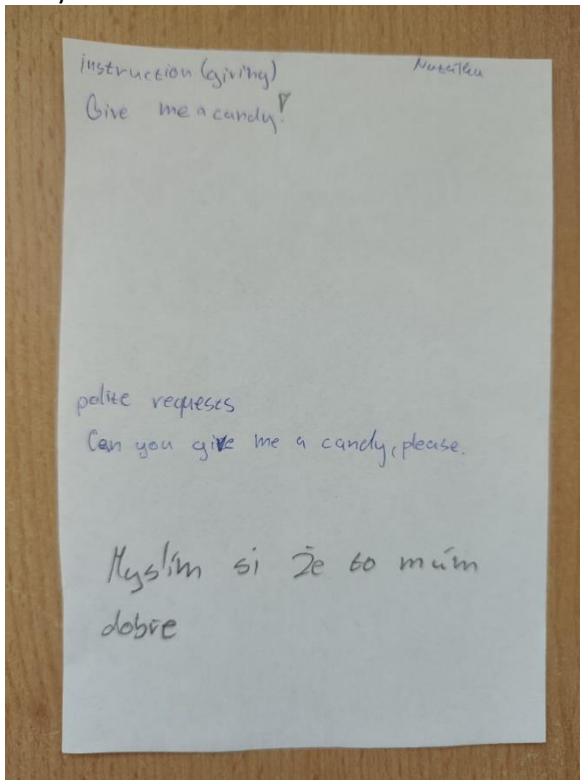 instruction (giving)
Give me a candy!
polite requests
Can you give me a candy, please.
Myslím si že to mám
dobře